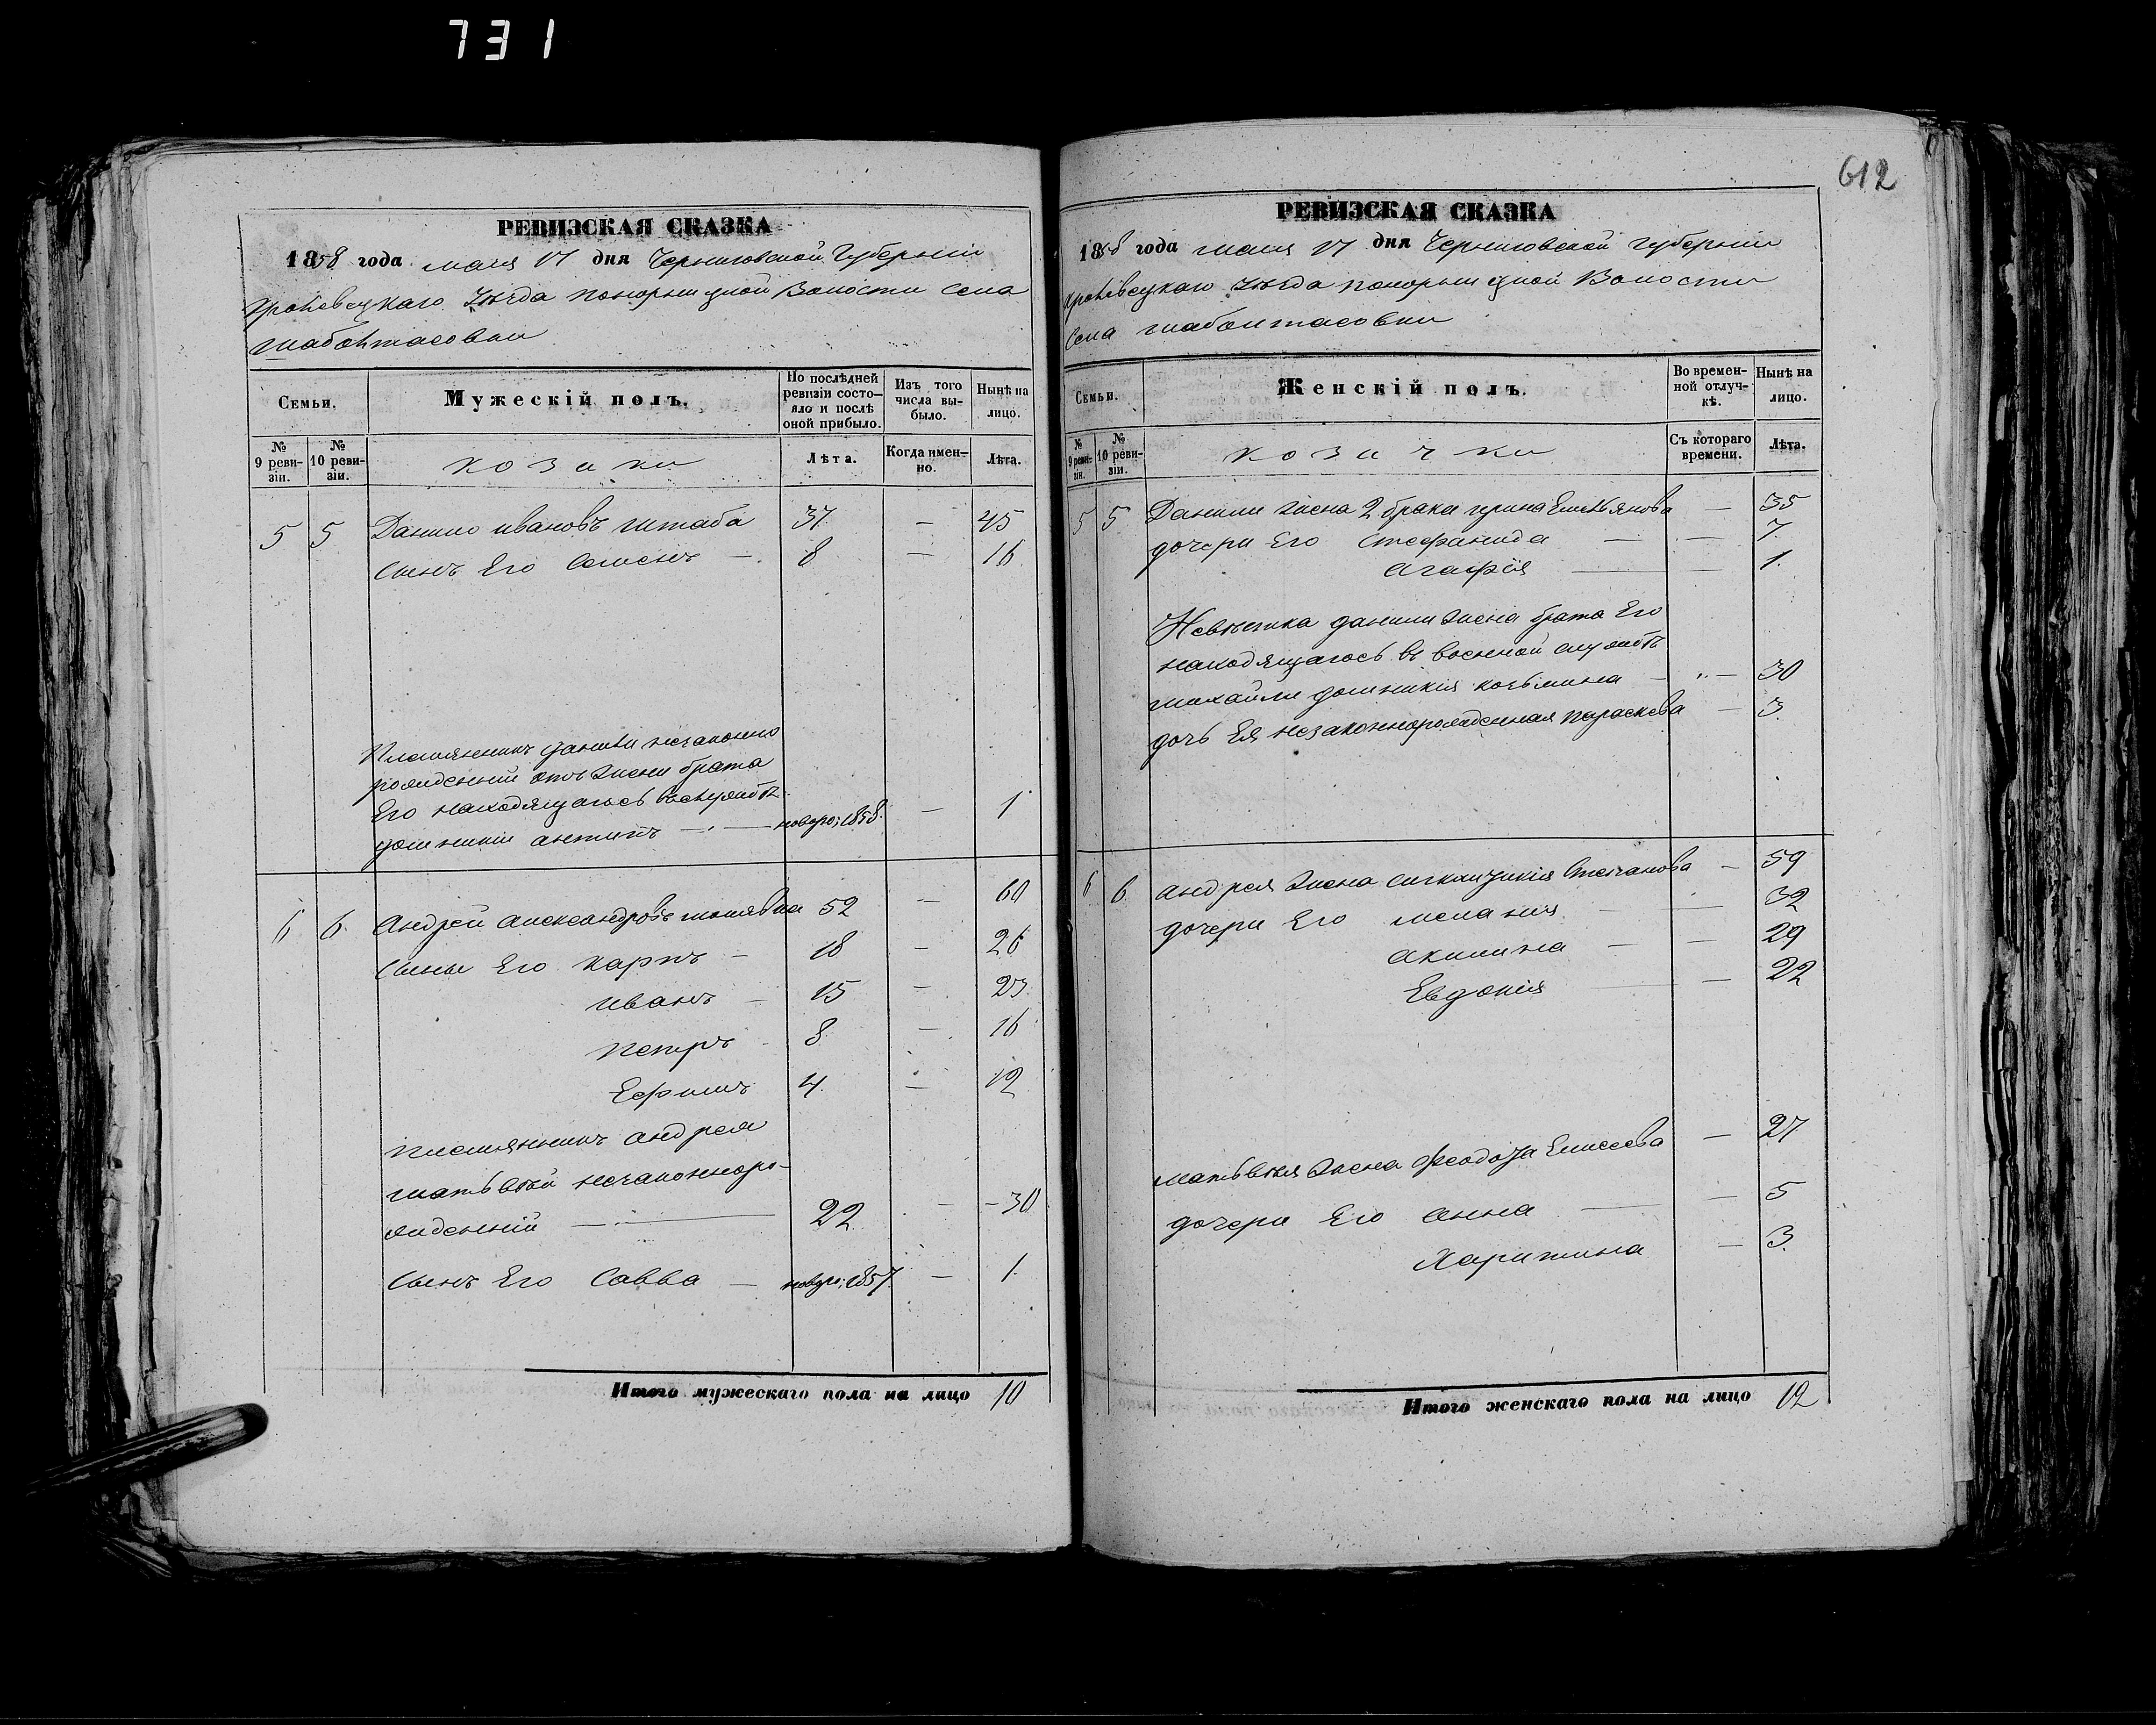 731
612
РЕВИЗСКАЯ СКАЗКА
1858 года мая 17 дня Черниговской Губерніи
Кролевецкаго Уѣзда Понорницкой Волости Села
Шабалтасовки
Семьи.
Мужескій полъ.
По послѣдней ревизіи состояло и послѣ оной прибыло.
Изъ того числа выбыло.
Нынѣ на лицо.
№ 9 ревизіи.
№ 10 ревизіи.
козаки
Лѣта.
Когда именно.
Лѣта.
5 5 Данило Ивановъ Штаба 37. — 45
Сынъ Его Семенъ — 8 — 16
Племянникъ Данилы незаконно
рожденный отъ жены брата
Его находящагося въ службѣ
Домникіи Антипъ — новоро: 1858. — 1
6 6 Андрей Александровъ 52 — 60
Сыны Его Карпъ — 18 — 26
Иванъ — 15 — 23.
Петръ 8. — 16
Ефимъ 4. — 12
Племянникъ Андрея
Матьвѣй незаконноро-
жденный — 22. — 30
Сынъ Его Савва — новоро: 1857. — 1.
Итого мужескаго пола на лицо 10
РЕВИЗСКАЯ СКАЗКА
1858 года мая 17 дня Черниговской Губерніи
Кролевецкаго Уѣзда Понорницкой Волости
Села Шабалтасовки
Семьи.
Женскій полъ.
Во временной отлучкѣ.
Нынѣ на лицо.
№ 9 ревизіи.
№ 10 ревизіи.
козачки
Съ котораго времени.
Лѣта.
5 5 Данилы жена 2 брака Ирина Емельянова — 35
дочери Его Стефанида — — 7.
Агафія — — 1.
Невѣстка Данилы жена брата Его
находящагося въ военной службѣ
Михайлы Домникія Козьмина — 30
дочь Ея незаконнорожденная Параскева — 3.
6 6 Андрея жена Степанова — 59
дочери Его Меланія — — 32
Акилина — — 29
Евдокія — — 22
Матьвѣя жена Феодоза Елисеева — 27
дочери Его Анна — — 5
Харитина — 3.
Итого женскаго пола на лицо 12